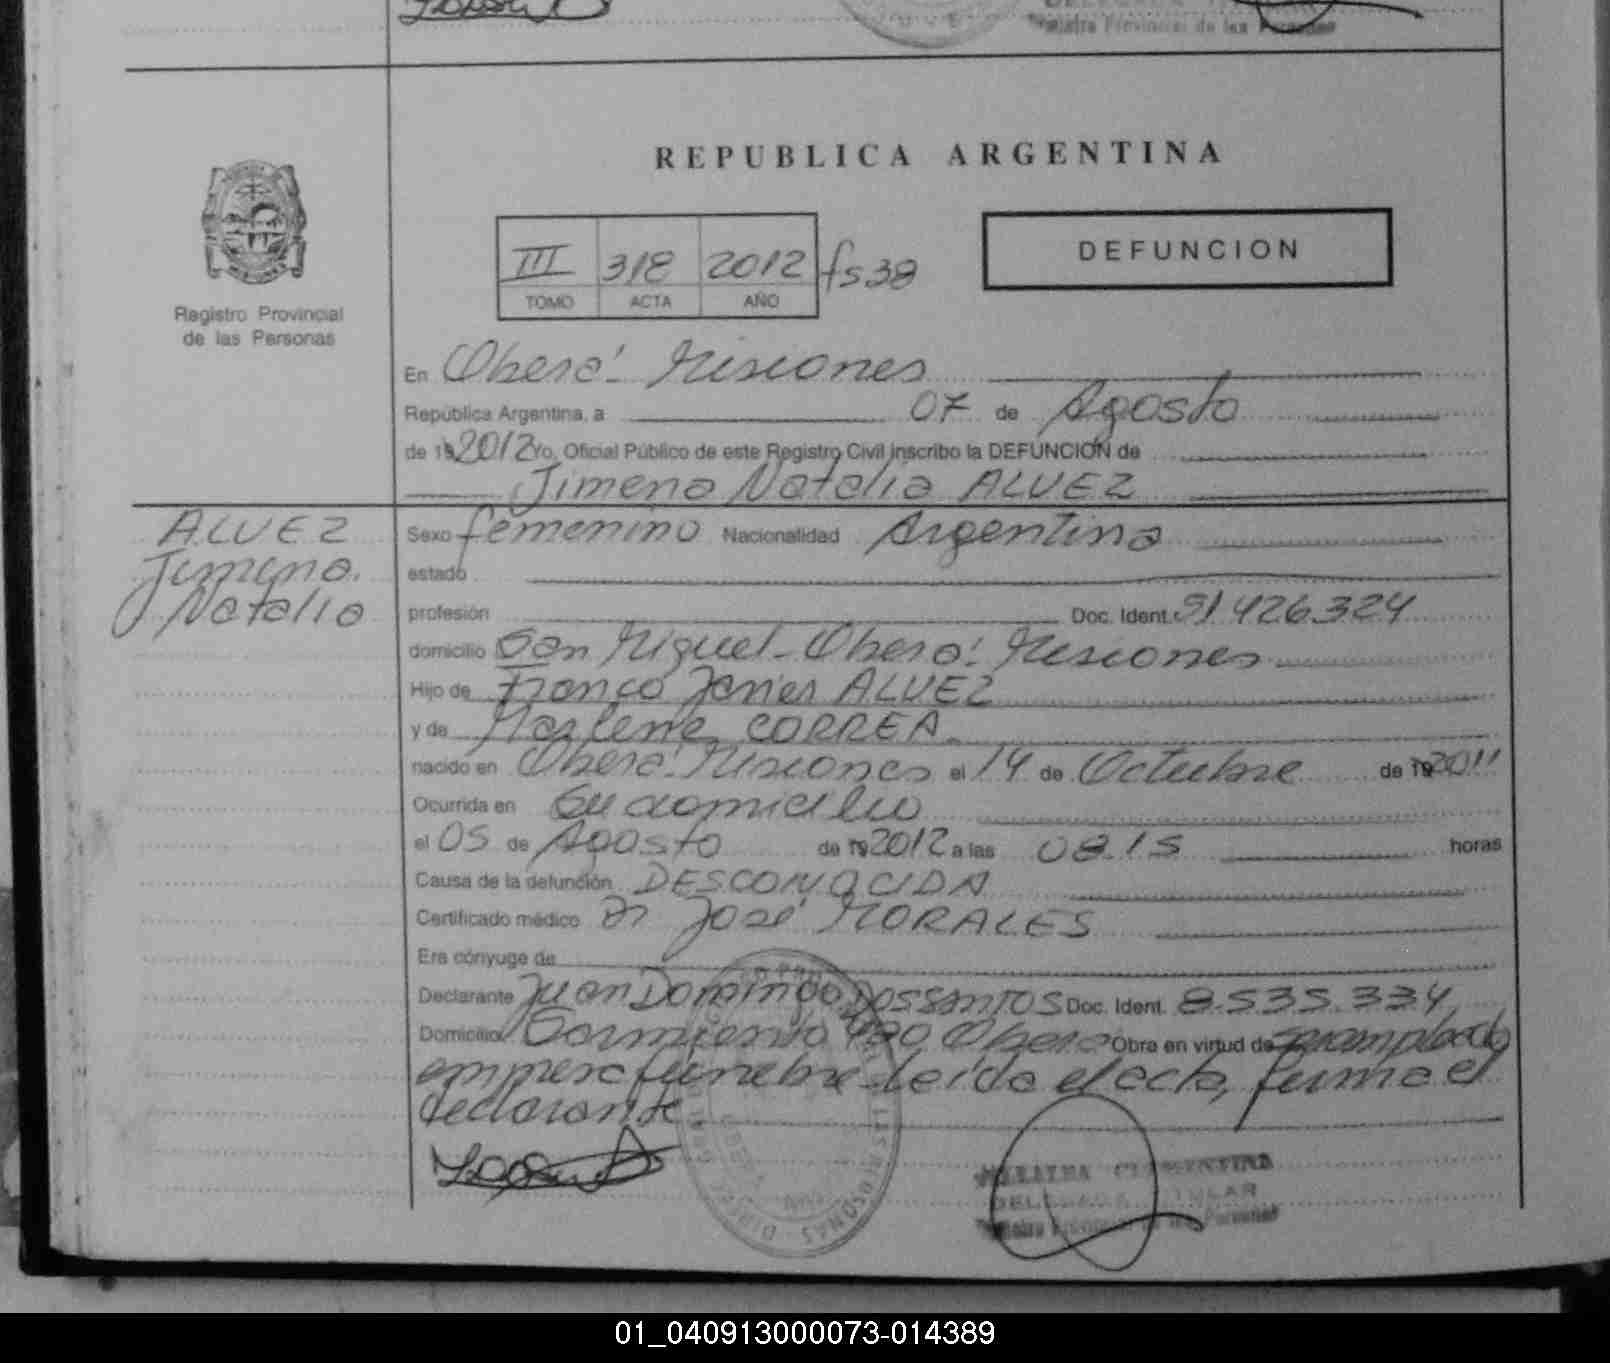 REPUBLICA ARGENTINA
III 318 2012 fs 38
TOMO ACTA AÑO
DEFUNCION
Registro Provincial
de las Personas
En Oberá - Misiones
República Argentina, a 07 de Agosto
de 19 2012 Yo, Oficial Público de este Registro Civil inscribo la DEFUNCION de
Jimena Natalia ALVEZ
ALVEZ
Jimena
Natalia
Sexo femenino Nacionalidad Argentina
estado
profesión Doc. Ident. 51.426.324
domicilio San Miguel - Oberá - Misiones
Hijo de Franco Javier ALVEZ
y de Marlene CORREA
nacido en Oberá - Misiones el 14 de Octubre de 19 2011
Ocurrida en Su domicilio
el 05 de Agosto de 19 2012 a las 08.15 horas
Causa de la defunción DESCONOCIDA
Certificado médico Dr José MORALES
Era cónyuge de
Declarante Juan Domingo DOSSANTOS Doc. Ident. 8.535.334
Domicilio Sarmiento Oberá Obra en virtud de ser empleado
empresa fúnebre leída el acta, firma el
declarante
DELEGADA TITULAR
01_040913000073-014389